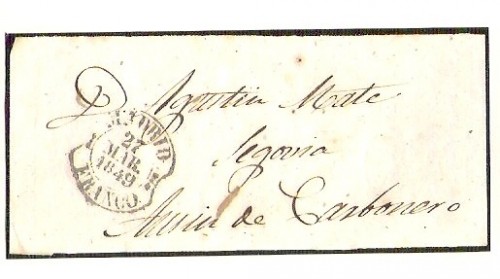 D. Agustin Mate
Segovia
de Carbonero
MADRID
27
MAR.
1849
FRANCO.